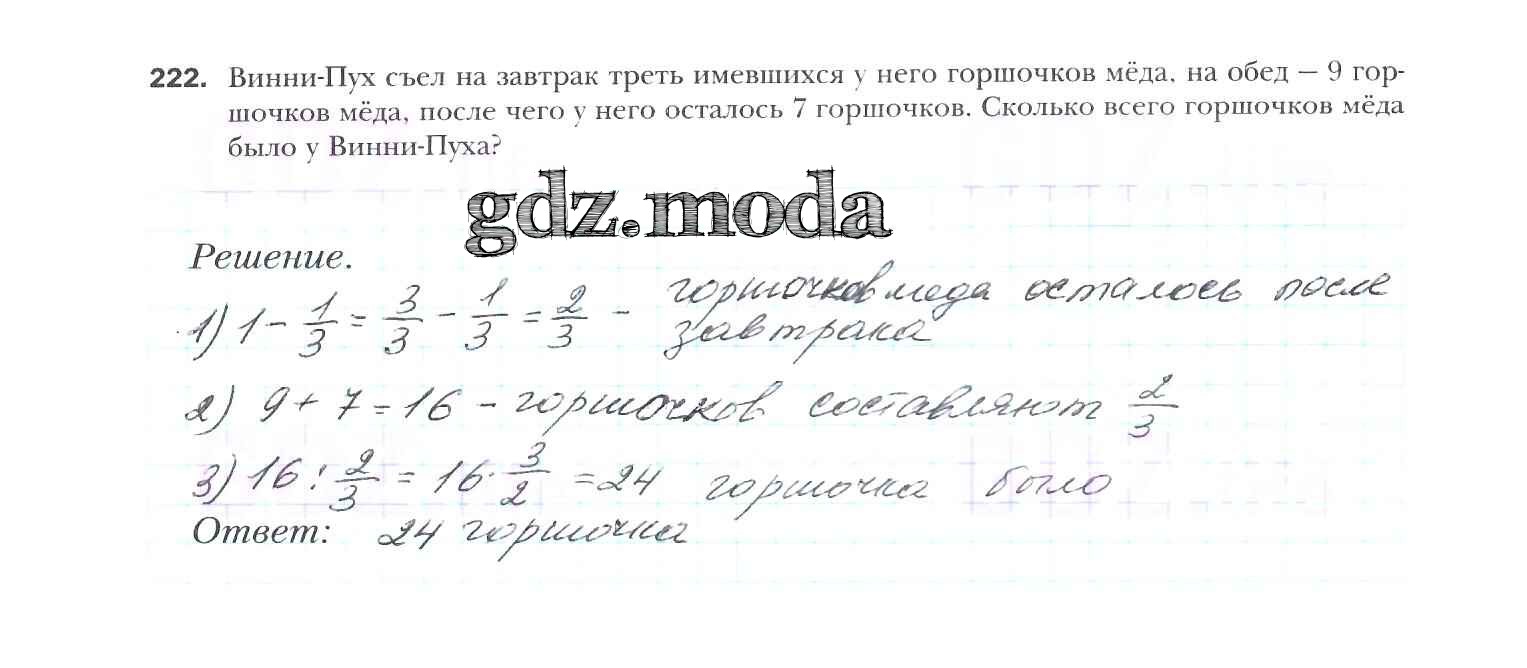 222. Винни-Пух съел на завтрак треть имевшихся у него горшочков мёда, на обед — 9 гор-
шочков мёда, после чего у него осталось 7 горшочков. Сколько всего горшочков мёда
было у Винни-Пуха?
gdz.moda
Решение.
1) 1 - 1/3 = 3/3 - 1/3 = 2/3 - горшочков меда осталось после
завтрака
2) 9 + 7 = 16 - горшочков составляют 2/3
3) 16 : 2/3 = 16 · 3/2 = 24 горшочка было
Ответ: 24 горшочка